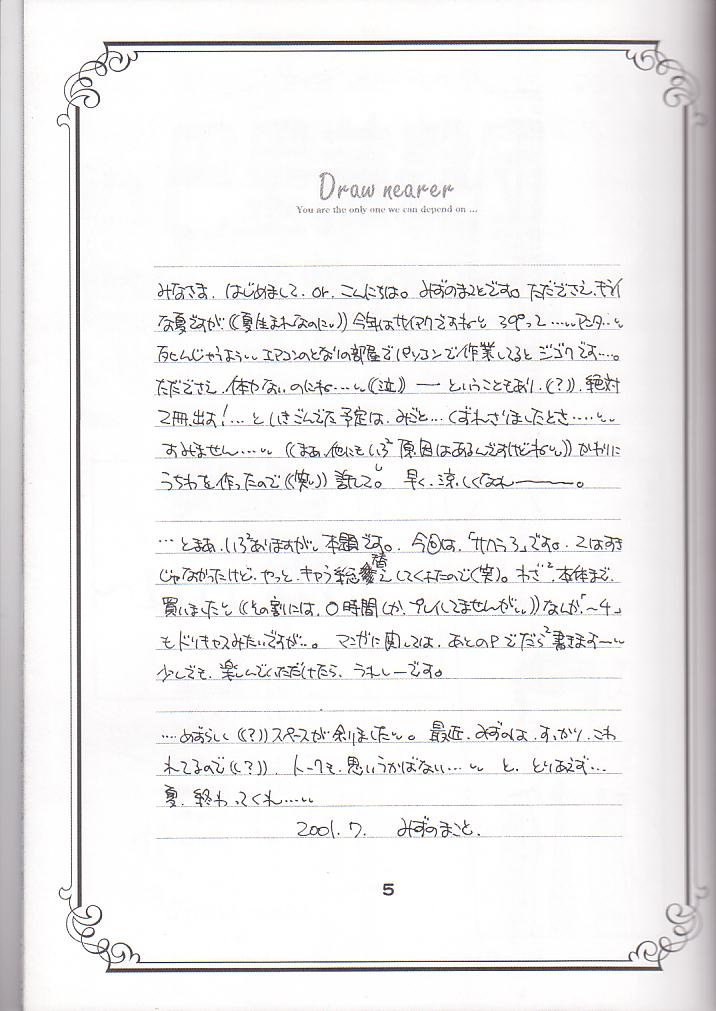 Draw nearer
You are the only one we can depend on ...
みなさま、はじめまして、or、こんにちは。みずのまことです。ただでさえ、キライ
な夏ですが、((夏生まれなのに〃)) 今年はサイアクですねぇ 39°って…〃アンタ〃
死んじゃうよう〃 エアコンのとなりの部屋でパソコンで作業してると ジゴクです…。
ただでさえ、体力ないのにね…〃((泣)) ― ということもあり、((?))、絶対
2冊、出す!…と いきごんでた予定は、みごと… くずれさりましたとさ……〃
すみません…〃 ((まあ、他にもいろ²原因はあるんですけどね〃)) かわりに
うちわを作ったので((笑〃)) 許して。 早く、涼しくなれ―――。
…とまあ、いろ²ありますが、本題です。今回は、「サクラ3」です。2はすき
じゃなかったけど、やっと、キャラ総替えしてくれたので(笑)。わざ²、本体まで、
買いましたよ((その割には、〇時間しか、プレイしてませんが〃)) なんか「~4」
もドリキャスみたいですが…。マンガに関しては、あとのPでだら²書きます~〃
少しでも、楽しんでいただけたら、うれしーです。
…めずらしく((?))スペースが余りました〃。最近、みずのは、すっかり、こわ
れてるので((?))、トークも、思いうかばない…〃 と、とりあえず…
夏、終わってくれ…〃
2001. 7. みずのまこと.
5